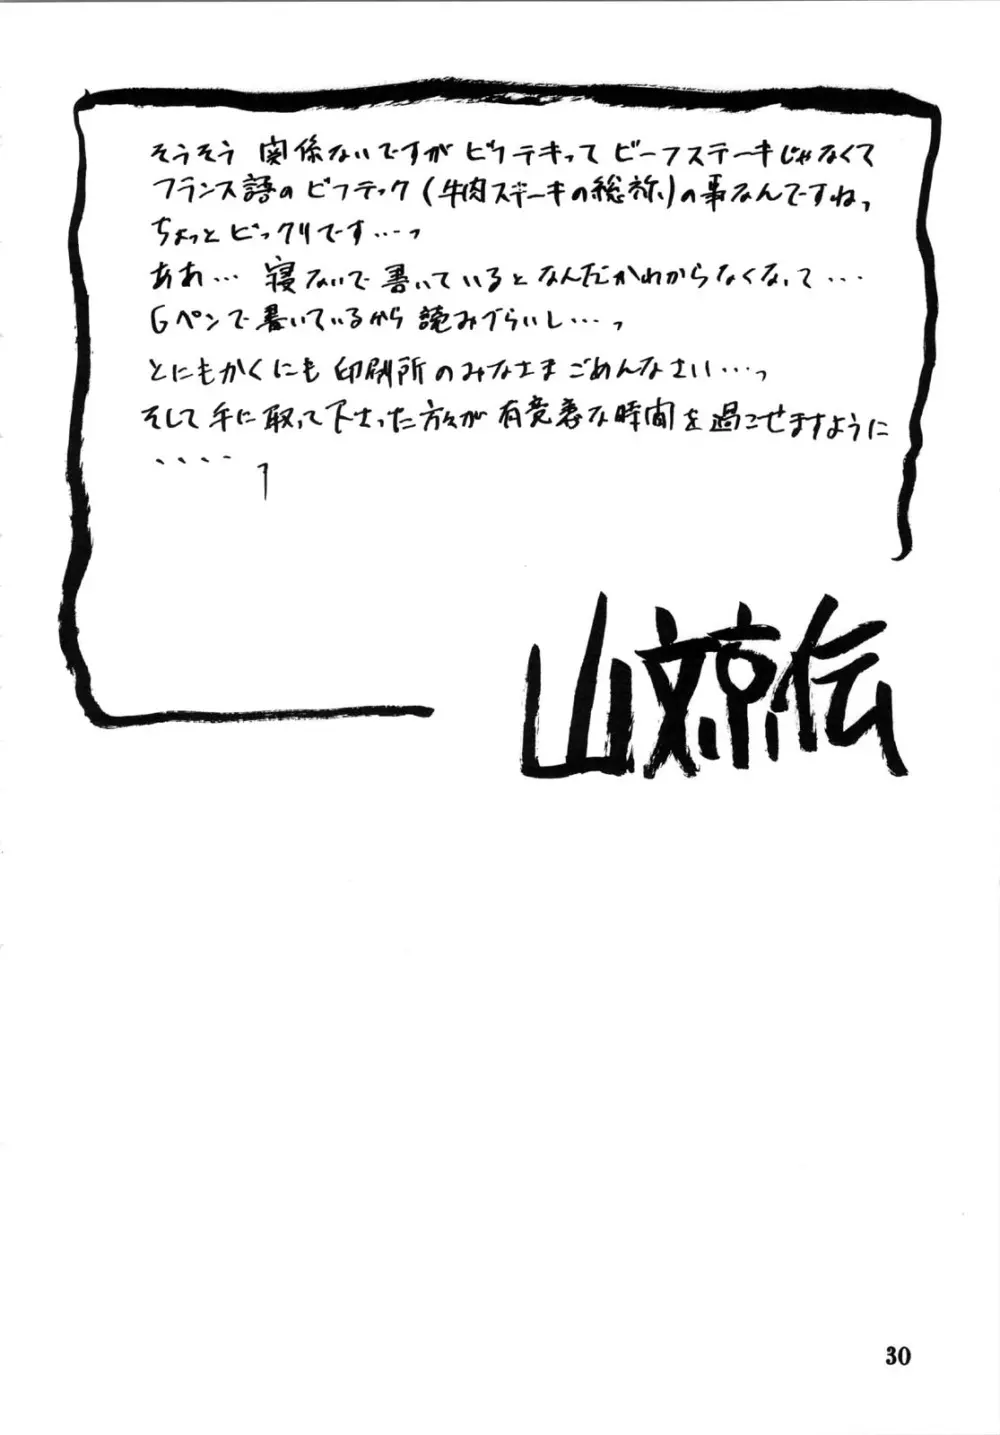 そうそう 関係ないですがビフテキって ビーフステーキじゃなくて
フランス語のビフテック(牛肉ステーキの総称)の事なんですねっ
ちょっとビックリです…っ
ああ… 寝ないで書いているとなんだかわからなくなって…
Gペンで書いているから読みづらいし…っ
とにもかくにも印刷所のみなさまごめんなさい…っ
そして手に取って下さった方々が有意義な時間を過ごせますように
・・・・っ
山文京伝
30